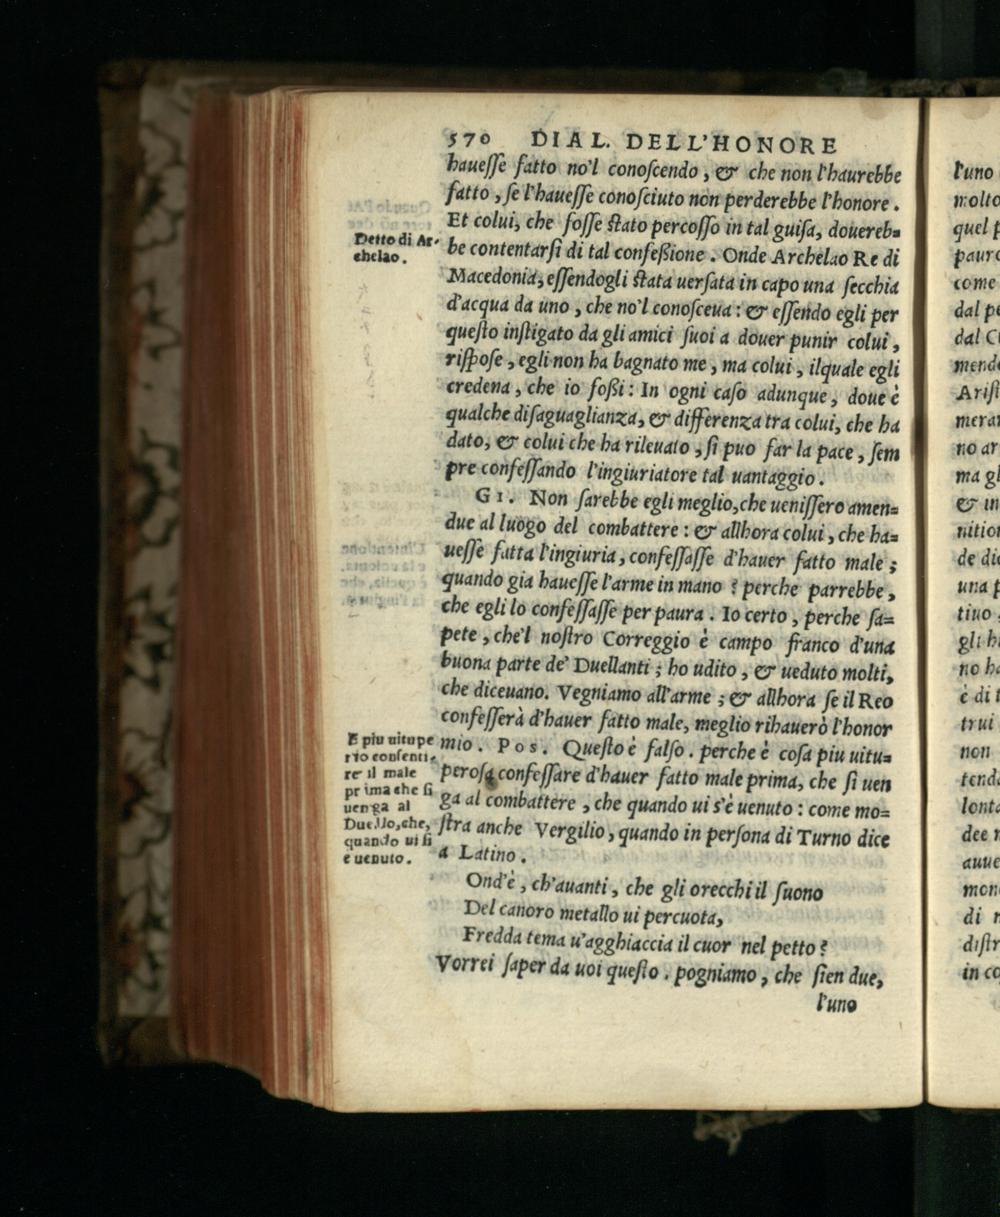 570 DIAL. DELL'HONORE
hauesse fatto no'l conoscendo, & che non l'haurebbe
fatto, se l'hauesse conosciuto non perderebbe l'honore.
Et colui, che fosse stato percosso in tal guisa, douereb=
Detto di Ar-
chelao.
be contentarsi di tal confessione. Onde Archelao Re di
Macedonia, essendogli stata uersata in capo una secchia
d'acqua da uno, che no'l conosceua: & essendo egli per
questo instigato da gli amici suoi a douer punir colui,
rispose, egli non ha bagnato me, ma colui, ilquale egli
credena, che io fossi: In ogni caso adunque, doue è
qualche disaguaglianza, & differenza tra colui, che ha
dato, & colui che ha rileuato, si puo far la pace, sem
pre confessando l'ingiuriatore tal uantaggio.
GI. Non sarebbe egli meglio, che uenissero amen=
due al luogo del combattere: & allhora colui, che ha=
uesse fatta l'ingiuria, confessasse d'hauer fatto male;
quando gia hauesse l'arme in mano? perche parrebbe,
che egli lo confessasse per paura. Io certo, perche sa=
pete, che'l nostro Correggio è campo franco d'una
buona parte de' Duellanti; ho udito, & ueduto molti,
che diceuano. Vegniamo all'arme; & allhora se il Reo
confesserà d'hauer fatto male, meglio rihauerò l'honor
mio. Pos. Questo è falso. perche è cosa piu uitu=
perosa confessare d'hauer fatto male prima, che si uen
ga al combattere, che quando ui s'è uenuto: come mo=
stra anche Vergilio, quando in persona di Turno dice
a Latino.
E piu uitupe
rio consenti-
re il male
prima che si
uenga al
Duello, che,
quando ui si
e uenuto.
Ond'è, ch'auanti, che gli orecchi il suono
Del canoro metallo ui percuota,
Fredda tema u'agghiaccia il cuor nel petto?
Vorrei saper da uoi questo. pogniamo, che sien due,
l'uno
l'uno
molto
quel
come
dal
dal
no ar
& in
de di
una
gli
no
è di
trui
non
dee
di
in